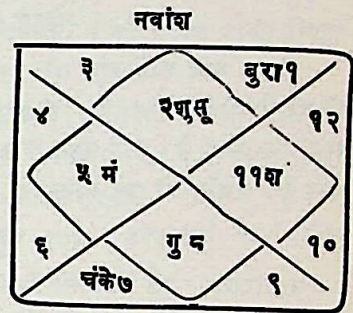 नवांश
३ बुरा१
२शुसू
४ १२
५ मं ११श
६ गु ८ १०
चंके७ ९